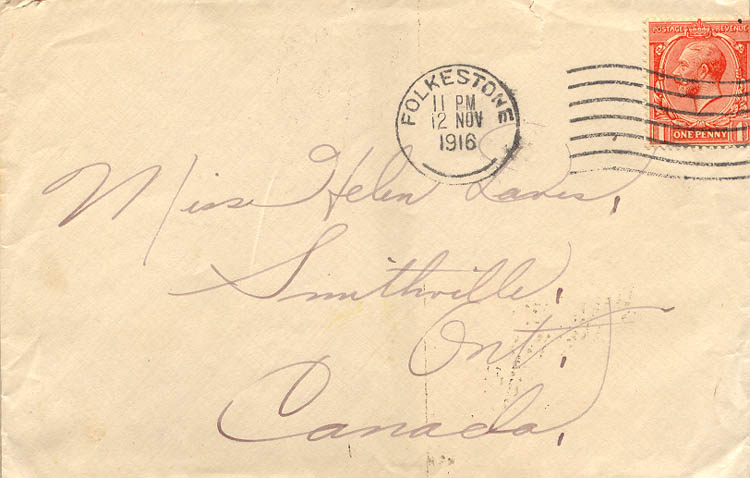 POSTAGE REVENUE
ONE PENNY
FOLKESTONE
11 PM
12 NOV
1916
Miss Helen Davis,
Smithville,
Ont,
Canada,